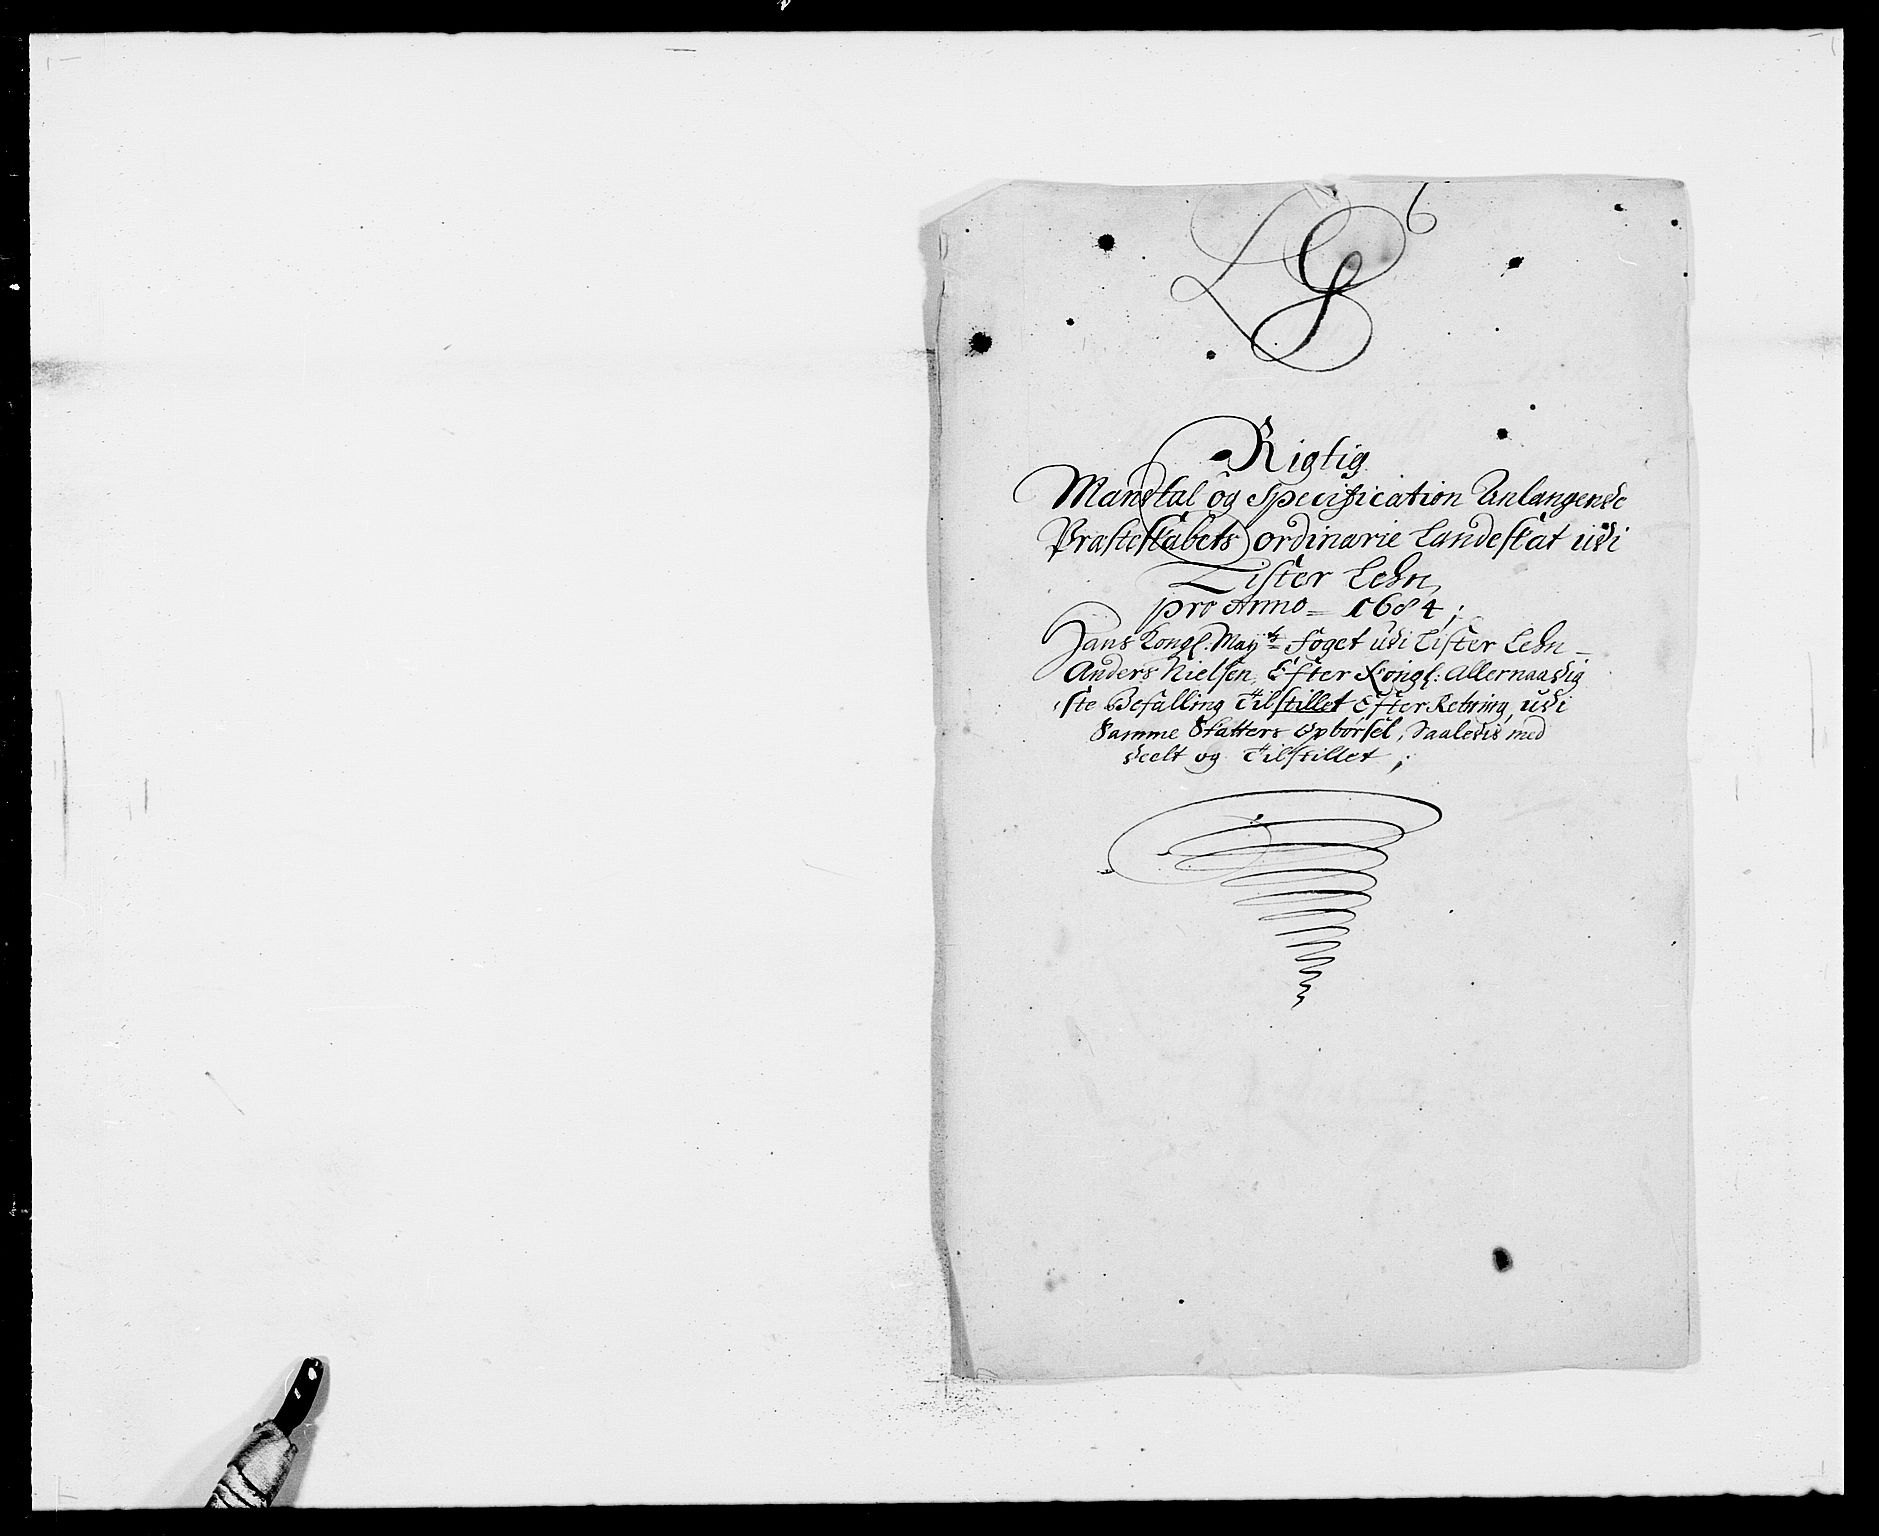 LS 6
Rigtig
Mandtal og Specification Anlangende
Præsteskabets ordinarie Landeskat udi
Lister Lehn,
pro Anno = 1684;
Hans Kongl. Mayts Foget udi Lister Lehn
Anders Nielsen, Efter Kongl: Allernaadig
ste Befalling Tilstillet Efter Retning, udi
Samme Skatters Opbørsel, Saaledis med
deelt og Tilstillet;